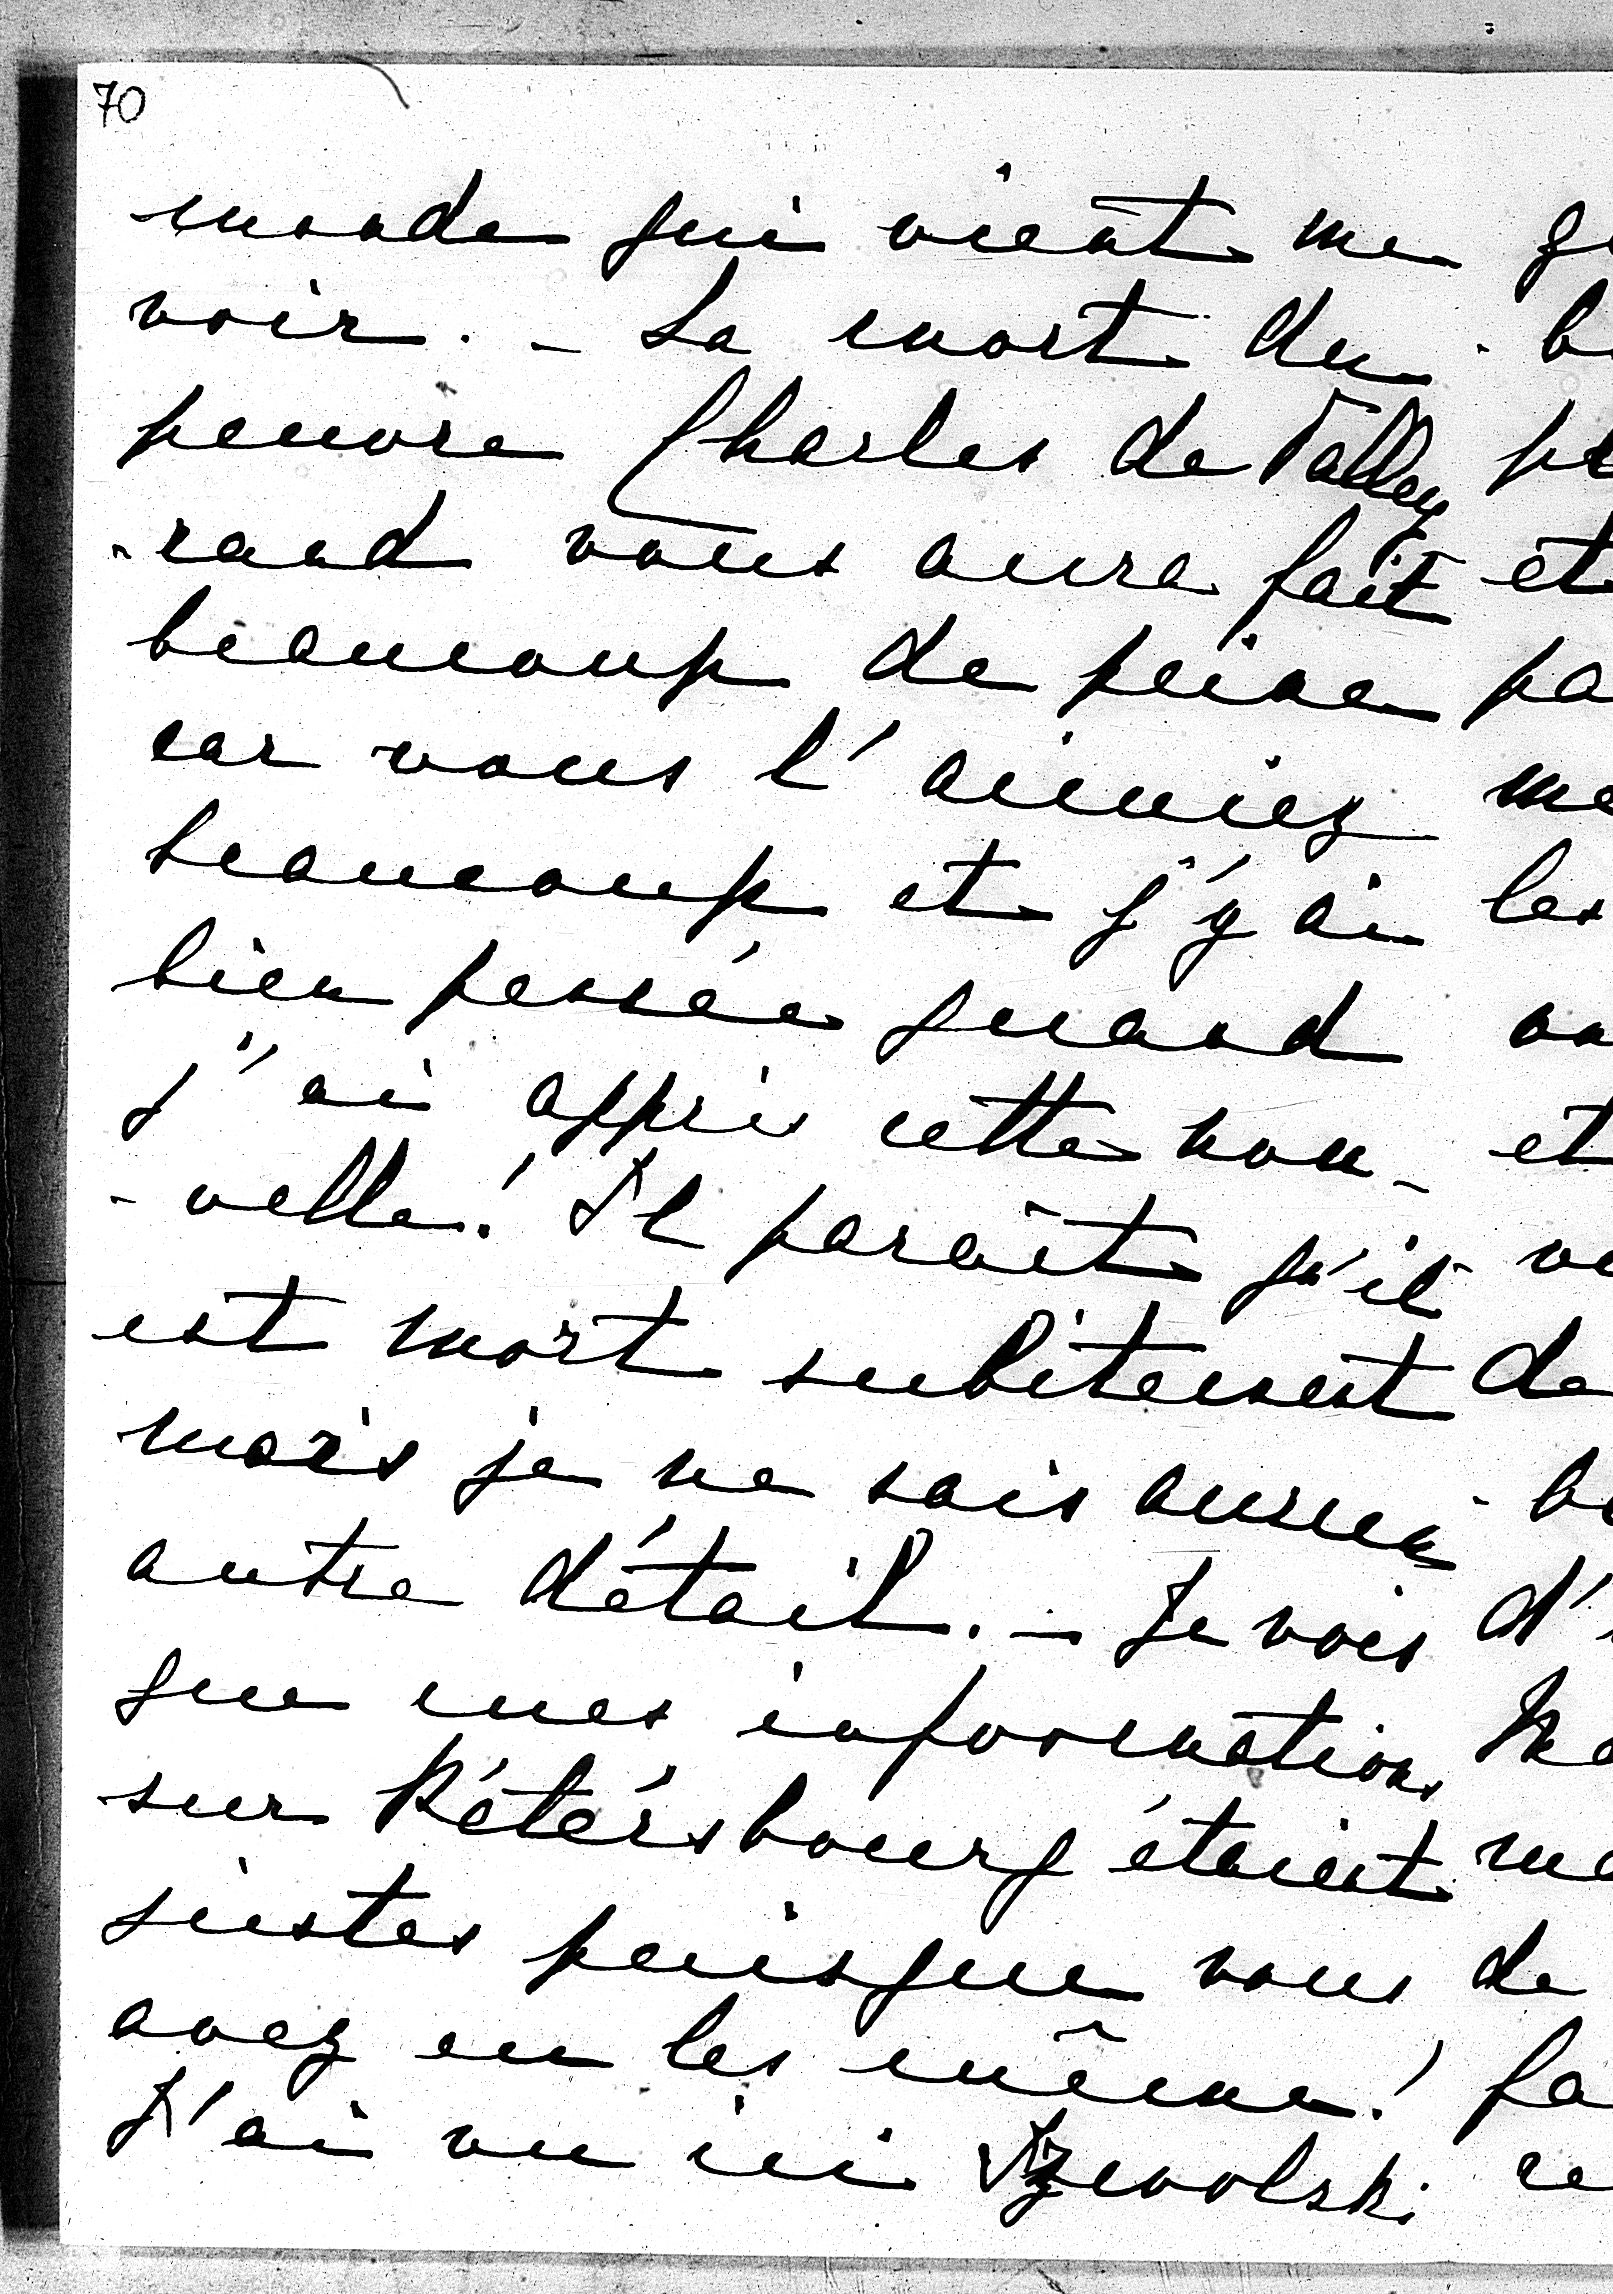 70
monde qui vient me
voir. – La mort du
pauvre Charles de Talley
-rand vous aura fait et
beaucoup de peine
car vous l'aimiez
beaucoup et j'y ai les
bien pensée quand
j'ai appris cette nou- et
-velle! Il paraît qu'il
est mort subitement de
mais je ne sais aucun
autre détail. – Je vois
que mes informations
sur Pétérsbourg étaient
justes puisque vous de
avez eu les même!
J'ai vu ici Izwolski